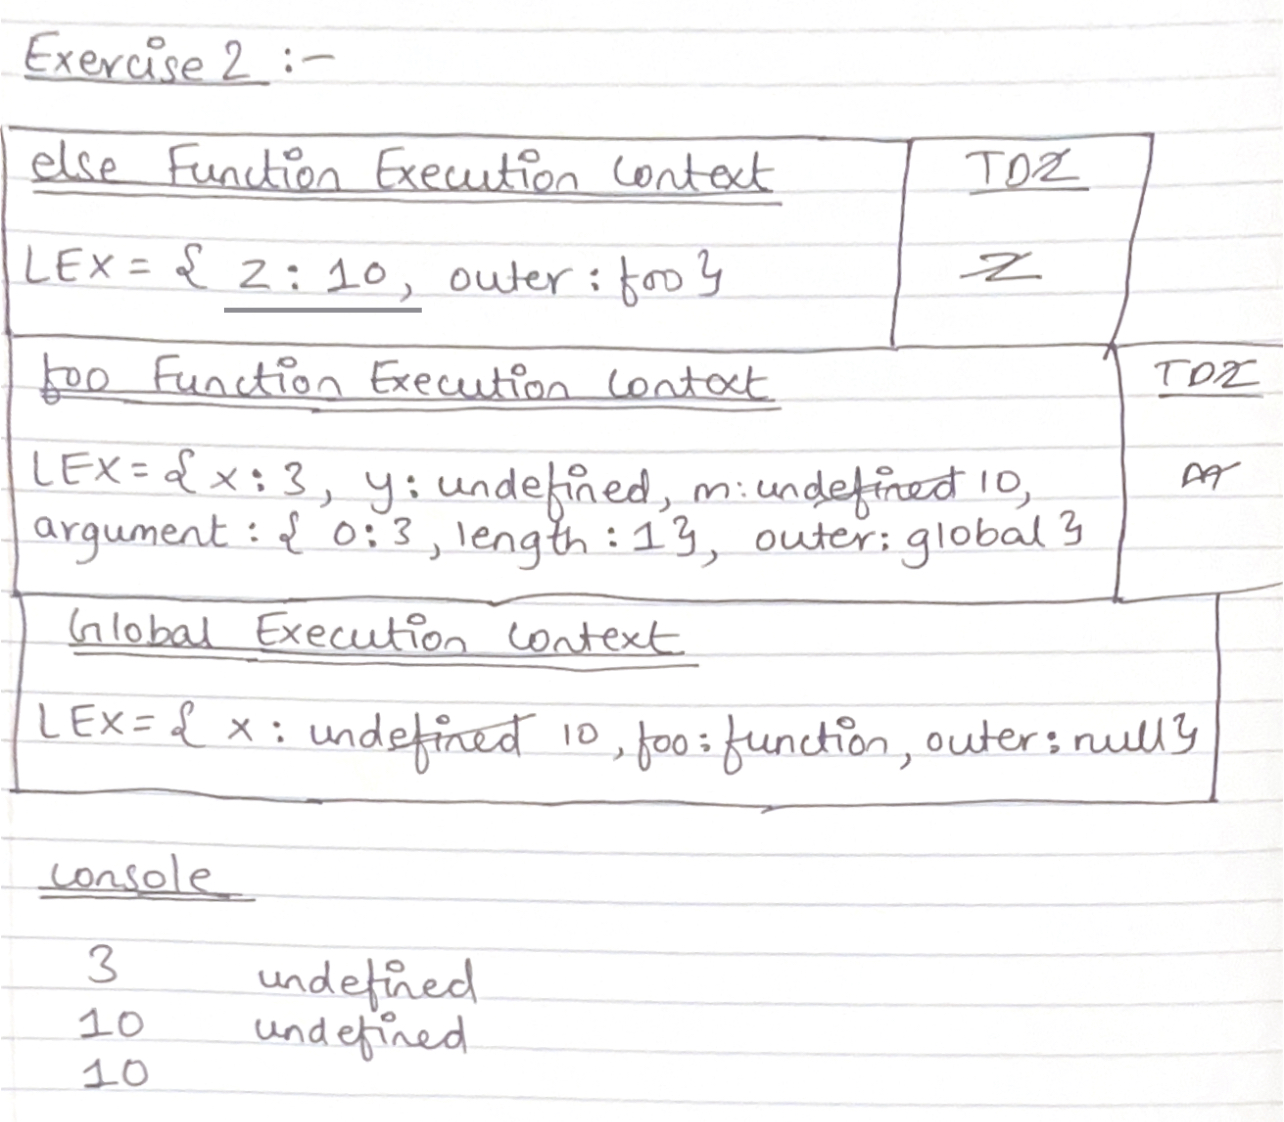 Exercise 2 :-
else Function Execution Context
TDZ
LEX = { z : 10, outer : foo }
Z
foo Function Execution Context
TDZ
LEX = { x : 3, y : undefined, m : undefined 10,
argument : { 0 : 3, length : 1 }, outer : global }
Global Execution Context
LEX = { x : undefined 10, foo : function, outer : null }
console
3 undefined
10 undefined
10